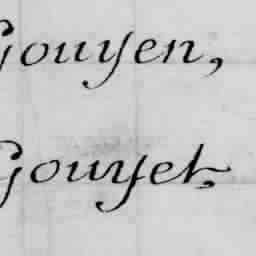 Gouyen,
Gouyet,